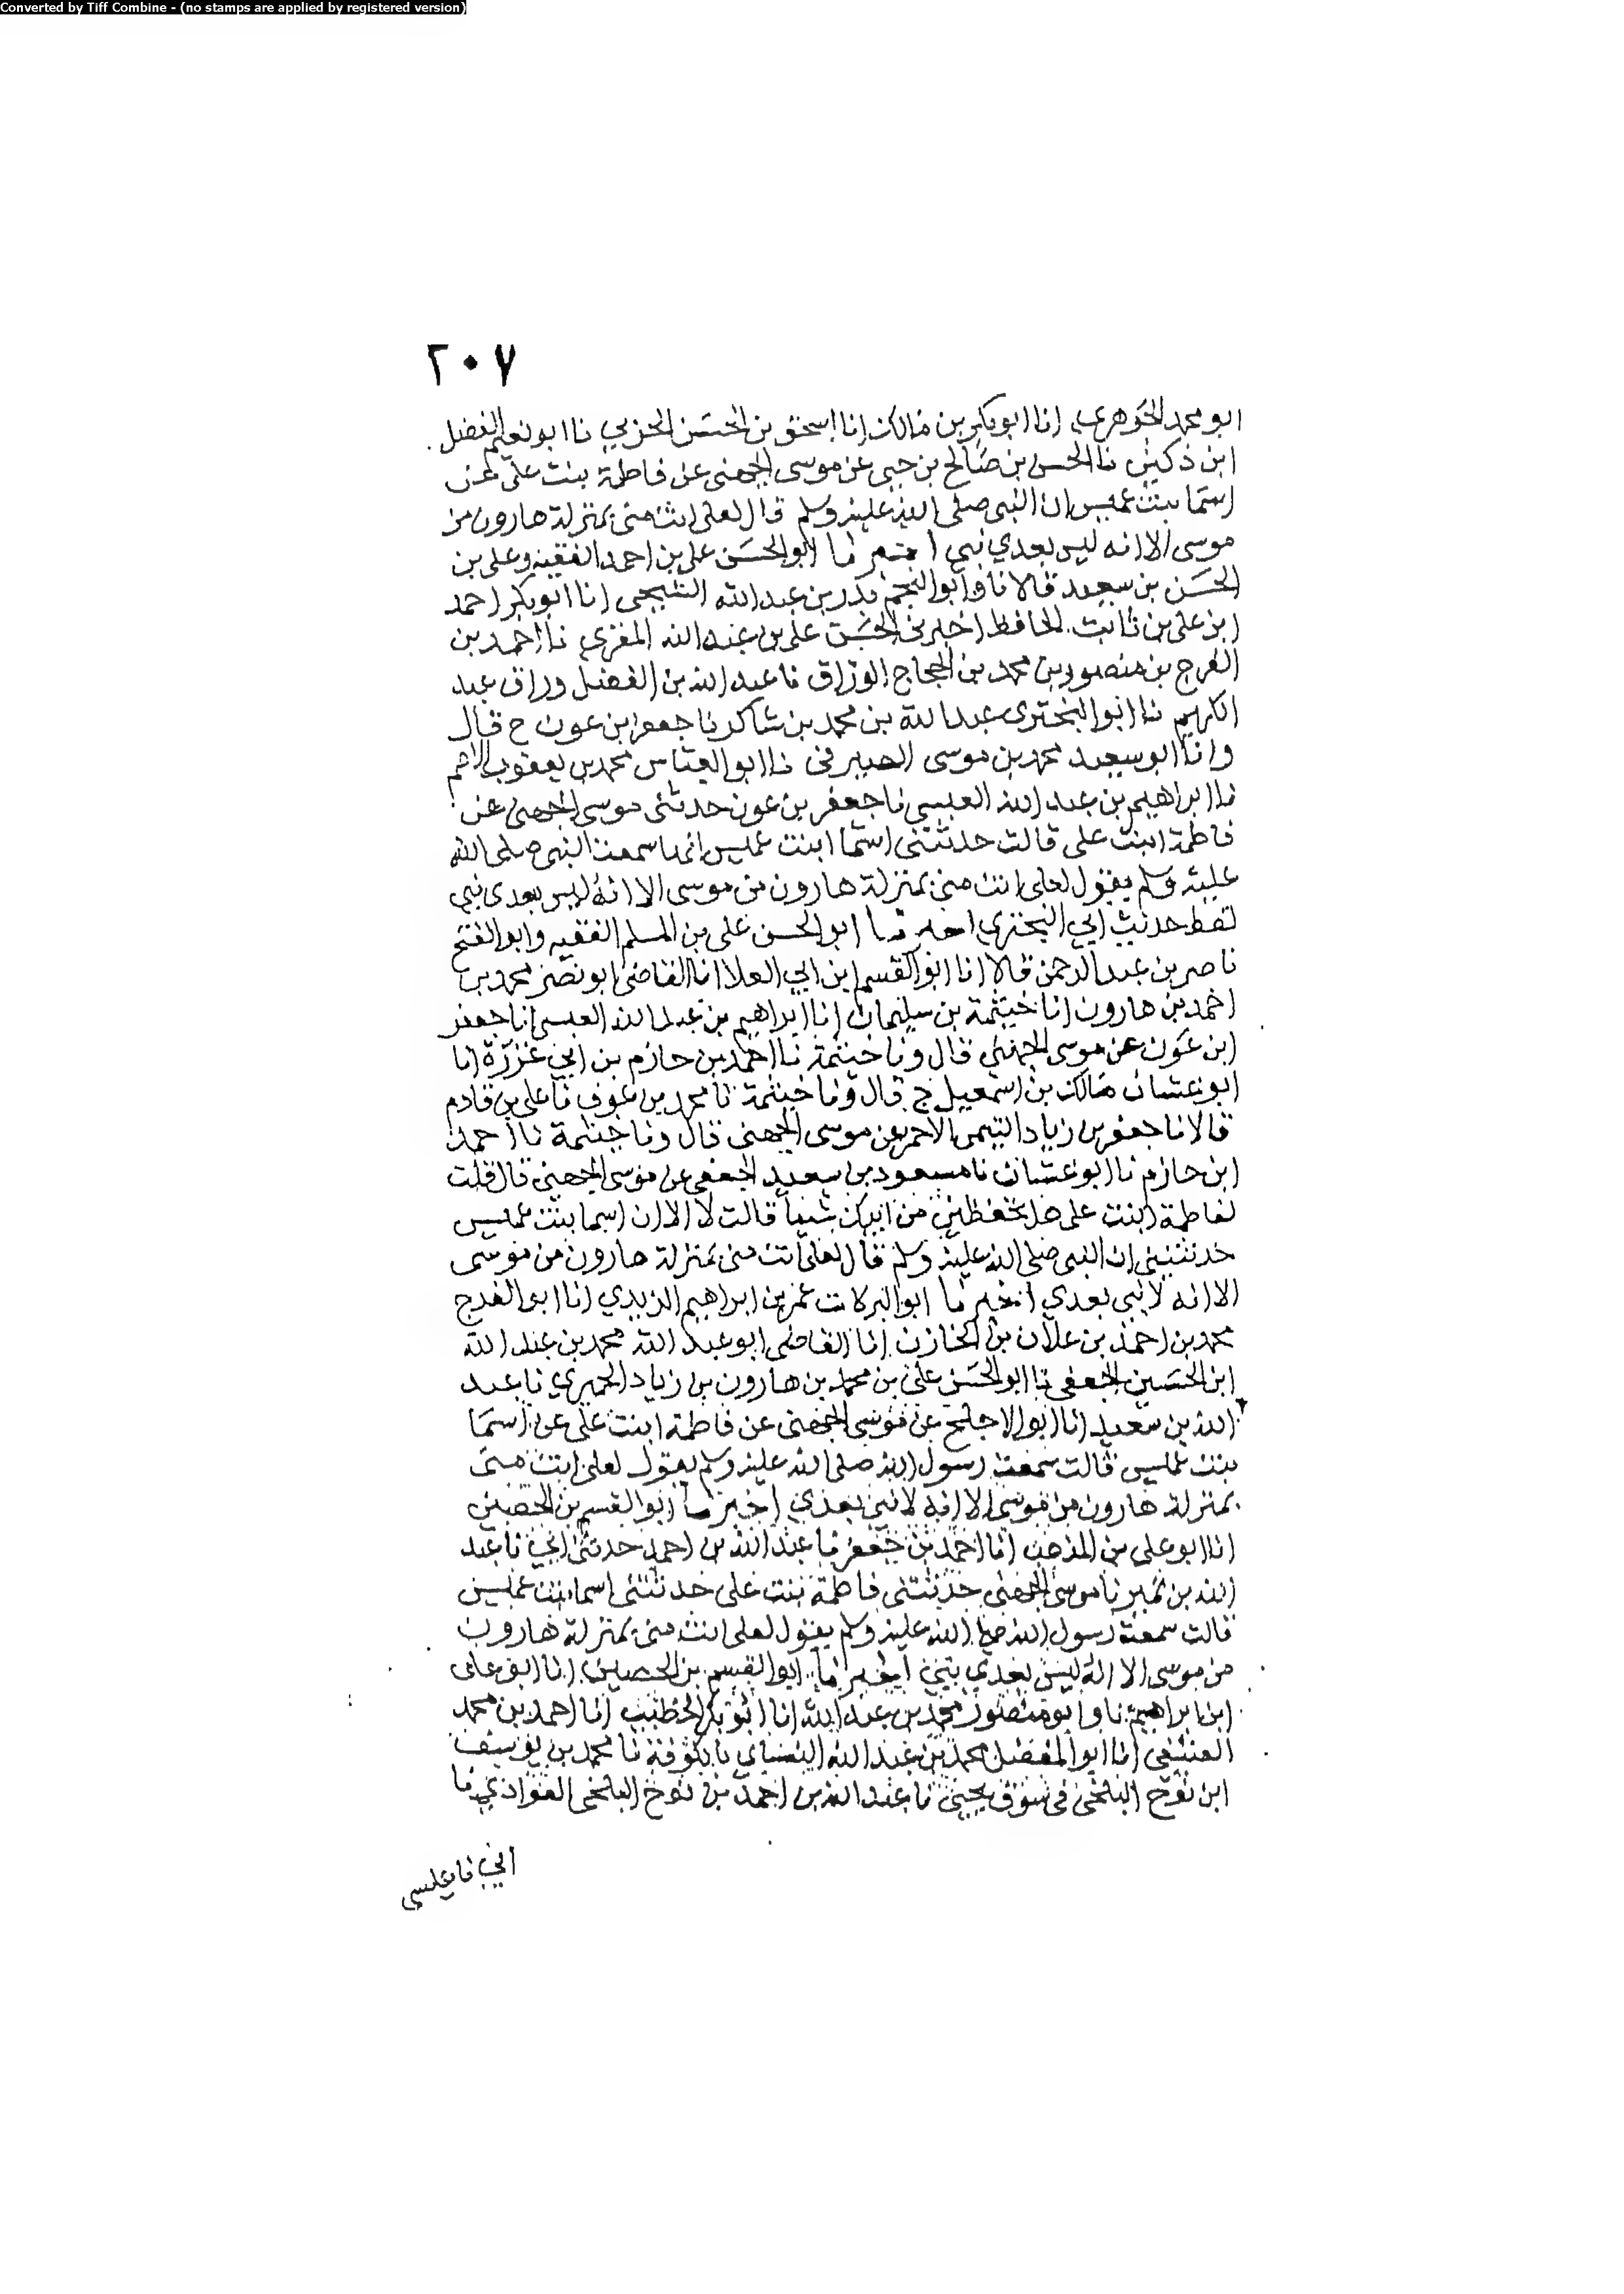 Converted by Tiff Combine - (no stamps are applied by registered version)
٢٠٧
ابو محمد الجوهري انا ابو بكر بن مالك انا اسحق بن الحسن الحربي نا ابو نعيم الفضل
ابن دكين نا الحسن بن صالح بن حي عن موسى الجهني عن فاطمة بنت علي عن
اسما بنت عميس ان النبي صلى الله عليه وسلم قال لعلي انت مني بمنزلة هارون من
موسى الا انه ليس بعدي نبي اخبرنا ابو الحسن علي بن احمد الفقيه وعلي بن
الحسن بن سعيد قالا نا وابو النجم بدر بن عبد الله الشيحي انا ابو بكر احمد
ابن علي بن ثابت الحافظ اخبرني الحسن علي بن عبد الله المقري نا احمد بن
الفرج بن منصور بن محمد بن الحجاج الوراق نا عبد الله بن الفضل وراق عبد
الكريم نا ابو البختري عبد الله بن محمد بن شاكر نا جعفر ابن عون ح قال
وانا ابو سعيد محمد بن موسى الصيرفي نا ابو العباس محمد بن يعقوب الاصم
نا ابراهيم بن عبد الله العبسي نا جعفر بن عون حدثني موسى الجهني عن
فاطمة ابنت علي قالت حدثتني اسما ابنت عميس انها سمعت النبي صلى الله
عليه وسلم يقول لعلي انت مني بمنزلة هارون من موسى الا انه ليس بعدي نبي
لفظ حديث ابي البختري اخبرنا ابو الحسن علي بن المسلم الفقيه وابو الفتح
ناصر بن عبد الرحمن قالا انا ابو القسم ابن ابي العلا انا القاضي ابو نصر محمد بن
احمد بن هارون انا خيثمة بن سليمان انا ابراهيم بن عبد الله العبسي انا جعفر
ابن عون عن موسى الجهني قال ونا خيثمة نا احمد بن حازم بن ابي غرزة انا
ابو غسان مالك بن اسمعيل ح قال ونا خيثمة نا محمد بن عوف نا علي بن قادم
قالا نا جعفر بن زياد التيمي الاحمر عن موسى الجهني قال ونا خيثمة نا احمد
ابن حازم نا ابو غسان نا مسعود بن سعيد الجعفي عن موسى الجهني قال قلت
لفاطمة ابنت علي هل تحفظين من ابيك شيا قالت لا الا ان اسما بنت عميس
حدثتني ان النبي صلى الله عليه وسلم قال لعلي انت مني بمنزلة هارون من موسى
الا انه لا نبي بعدي اخبرنا ابو البركات عمر بن ابراهيم الزيدي انا ابو الفرج
محمد بن احمد بن علان بن الخازن انا القاضي ابو عبد الله محمد بن عبد الله
ابن الحسين الجعفي نا ابو الحسن علي بن محمد بن هارون بن زياد الحميري نا عبد
الله بن سعيد انا ابو الاجلح عن موسى الجهني عن فاطمة ابنت علي عن اسما
بنت عميس قالت سمعت رسول الله صلى الله عليه وسلم يقول لعلي انت مني
بمنزلة هارون من موسى الا انه لا نبي بعدي اخبرنا ابو القسم بن الحصين
انا ابو علي بن المذهب انا احمد بن جعفر نا عبد الله بن احمد حدثني ابي نا عبد
الله بن نمير نا موسى الجهني حدثتني فاطمة بنت علي حدثتني اسما بنت عميس
قالت سمعت رسول الله صلى الله عليه وسلم يقول لعلي انت مني بمنزلة هارون
من موسى الا انه ليس بعدي نبي اخبرنا ابو القسم بن الحصين انا ابو علي
ابن ابراهيم نا وابو منصور محمد بن عبد الله انا ابو بكر الخطيب انا احمد بن محمد
العتيقي انا ابو المفضل محمد بن عبد الله الشيباني بالكوفة نا محمد بن يوسف
ابن نوح البلخي في سوق يحيى نا عبد الله بن احمد بن نوح البلخي القوادي نا
ابي نا عيسى